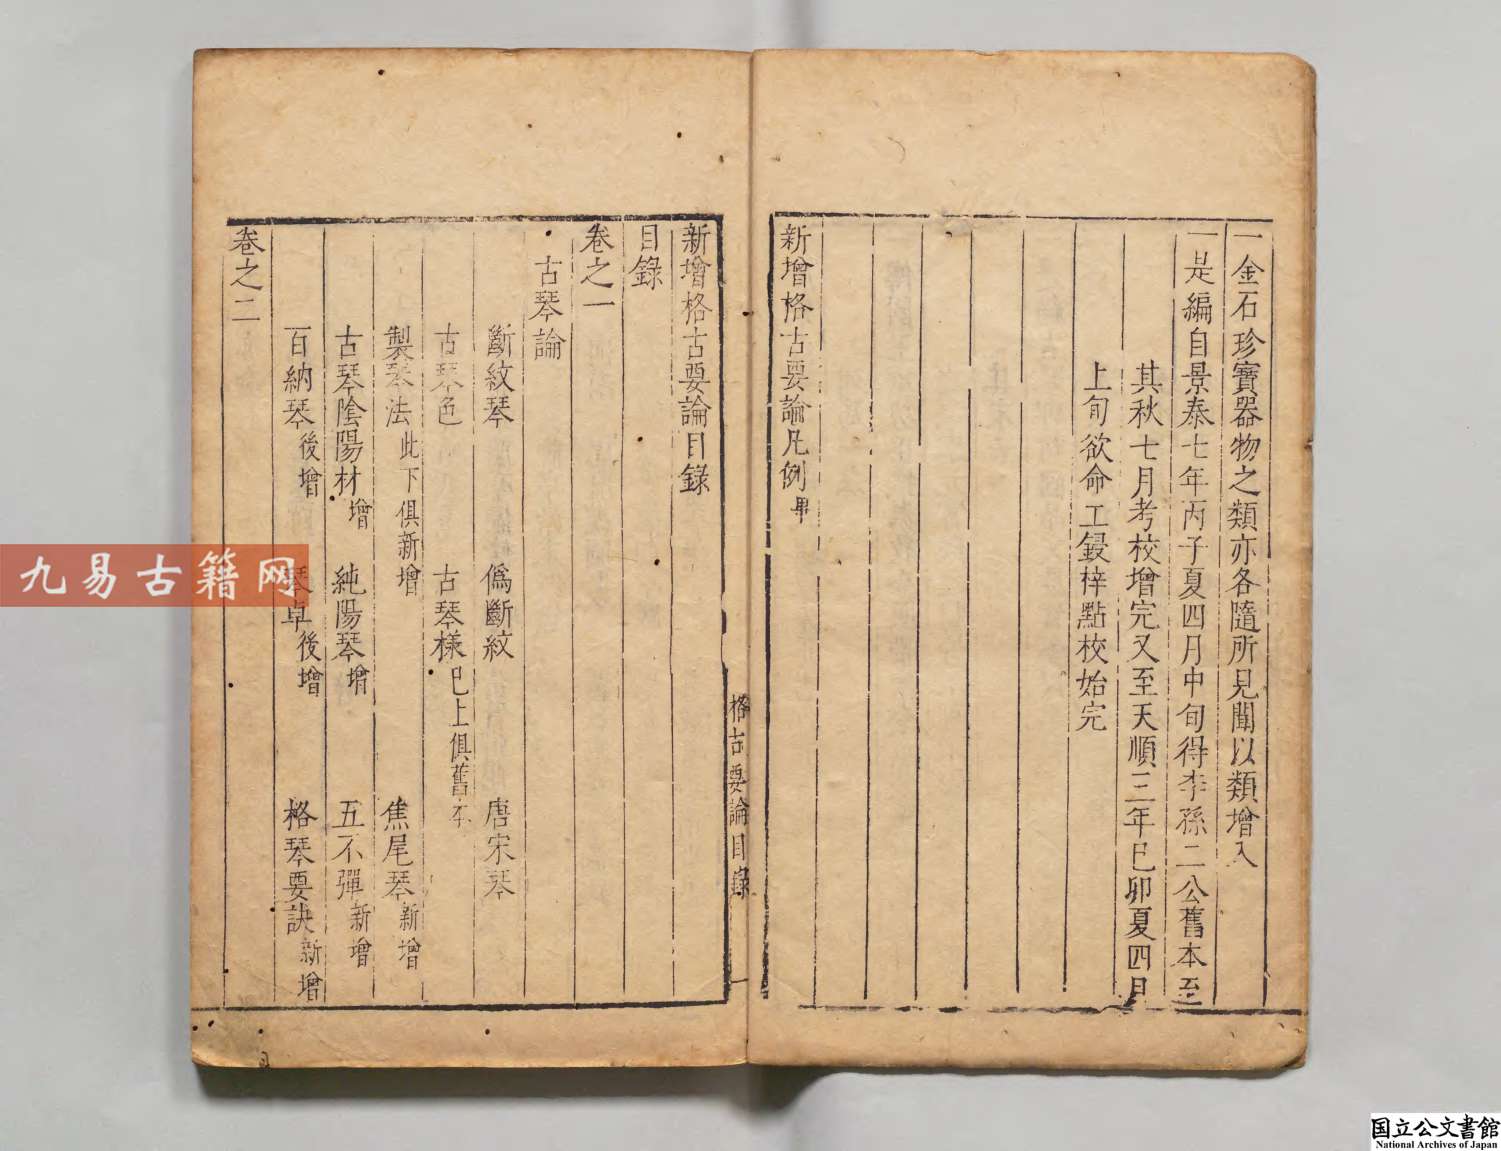 一金石珍寶器物之類亦各隨所見聞以類增入
一是編自景泰七年丙子夏四月中旬得李孫二公舊本至
其秋七月考校增完又至天順三年己卯夏四月
上旬欲命工鋟梓點校始完
新增格古要論凡例畢
格古要論目錄 一
新增格古要論目錄
目錄
卷之一
古琴論
斷紋琴 僞斷紋 唐宋琴
古琴色 古琴樣已上俱舊本
製琴法此下俱新增 焦尾琴新增
古琴陰陽材增 純陽琴增 五不彈新增
百納琴後增 琴卓後增 格琴要訣新增
卷之二
九易古籍网
国立公文書館
National Archives of Japan